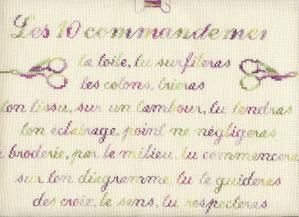 Les 10 commandemen
la toile, tu surfileras
les cotons, trieras
ton tissu, sur un tambour, tu tendras
ton éclairage, point ne négligeras
broderie, par le milieu, tu commencera
sur ton diagramme, tu te guideras
des croix, le sens, tu respecteras